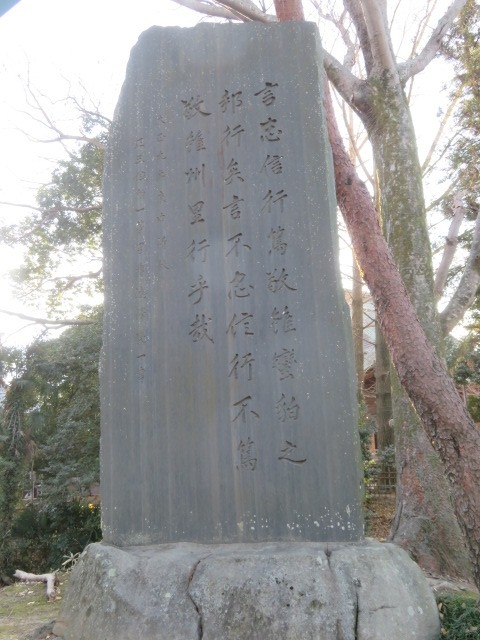 言忠信行篤敬雖蠻貊之
邦行矣言不忠信行不篤
敬雖州里行乎哉